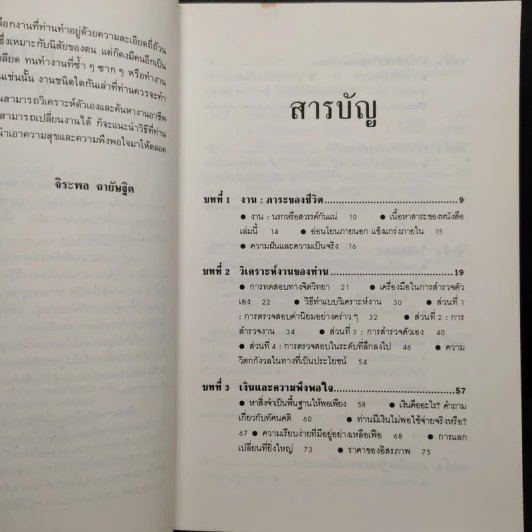 ลือกงานที่ท่านทำอยู่ด้วยความละเอียดถี่ถ้วน
ซึ่งเหมาะกับนิสัยของตน แต่ก็คงมีคนอีกเป็น
กลียด ทนทำงานที่ซ้ำ ๆ ซาก ๆ หรือทำงาน
นเช่นนั้น งานชนิดใดกันเล่าที่ท่านควรจะทำ
นสามารถวิเคราะห์ตัวเองและค้นหางานอาชีพ
สามารถเปลี่ยนงานได้ ก็จะแนะนำวิธีที่ท่าน
นำเอาความสุขและความพึงพอใจมาให้ตลอด
จิระพล ฉายัษฐิต
สารบัญ
บทที่ 1 งาน : ภาระของชีวิต 9
● งาน : นรกหรือสวรรค์กันแน่ 10 ● เนื้อหาสาระของหนังสือ
เล่มนี้ 14 ● อ่อนโยนภายนอก แข็งแกร่งภายใน 15
● ความฝันและความเป็นจริง 16
บทที่ 2 วิเคราะห์งานของท่าน 19
● การทดสอบทางจิตวิทยา 21 ● เครื่องมือในการสำรวจตัว
เอง 22 ● วิธีทำแบบวิเคราะห์งาน 30 ● ส่วนที่ 1
: การตรวจสอบค่านิยมอย่างคร่าว ๆ 32 ● ส่วนที่ 2 : การ
สำรวจงาน 34 ● ส่วนที่ 3 : การสำรวจตัวเอง 40
● ส่วนที่ 4 : การตรวจสอบในระดับที่ลึกลงไป 46 ● ความ
วิตกกังวลในทางที่เป็นประโยชน์ 54
บทที่ 3 เงินและความพึงพอใจ 57
● หาสิ่งจำเป็นพื้นฐานให้พอเพียง 58 ● เงินคืออะไร? คำถาม
เกี่ยวกับทัศนคติ 60 ● ท่านมีเงินไม่พอใช้จ่ายจริงหรือ?
67 ● ความเรียบง่ายที่มีอยู่อย่างเหลือเฟือ 68 ● การแลก
เปลี่ยนที่ยิ่งใหญ่ 73 ● ราคาของอิสรภาพ 75